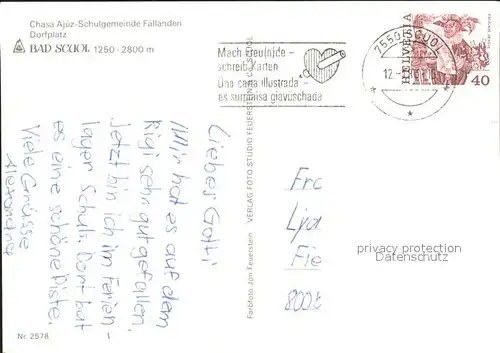 Chasa Ajüz-Schulgemeinde Fällanden
Dorfplatz
BAD SCUOL 1250-2800 m
Mach Freu(n)de -
schreib Karten
Üna carta illustrada -
es surpraisa giavüschada
7550 SCUOL
12.-
HELVETIA
40
Lieber Götti
Mir hat es auf dem
Rigi sehr gut gefallen.
Jetzt bin ich im Ferien-
lager Schuls. Dort hat
es eine schöne Piste.
Viele Grüsse
Alexandra
Farbfoto Jon Feuerstein VERLAG FOTO STUDIO FEUERSTEIN SCUOL
Fra
Lyd
Fie
8008
privacy protection
Datenschutz
Nr. 2578